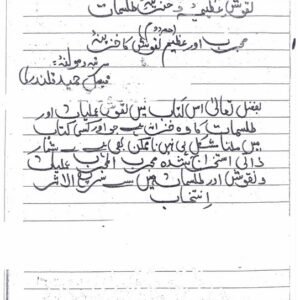 نقوش عظیم و خزینہ طلسمات
(حصہ دوم)
مجرب اور عظیم نقوش کا خزینہ
مرتبہ و مولفہ:
فیصل حیدر قلندری
بفضل تعالیٰ اس کتاب میں نقوش عملیات اور
طلسمات کا وہ خزانہ ہے جو اور کسی کتاب
میں ملنا مشکل ہی نہیں ناممکن بھی ہے بے شمار
ذاتی استخراج شدہ مجرب المجرب عملیات
و نقوش اور طلسمات میں سے سریع الاثر
انتخاب